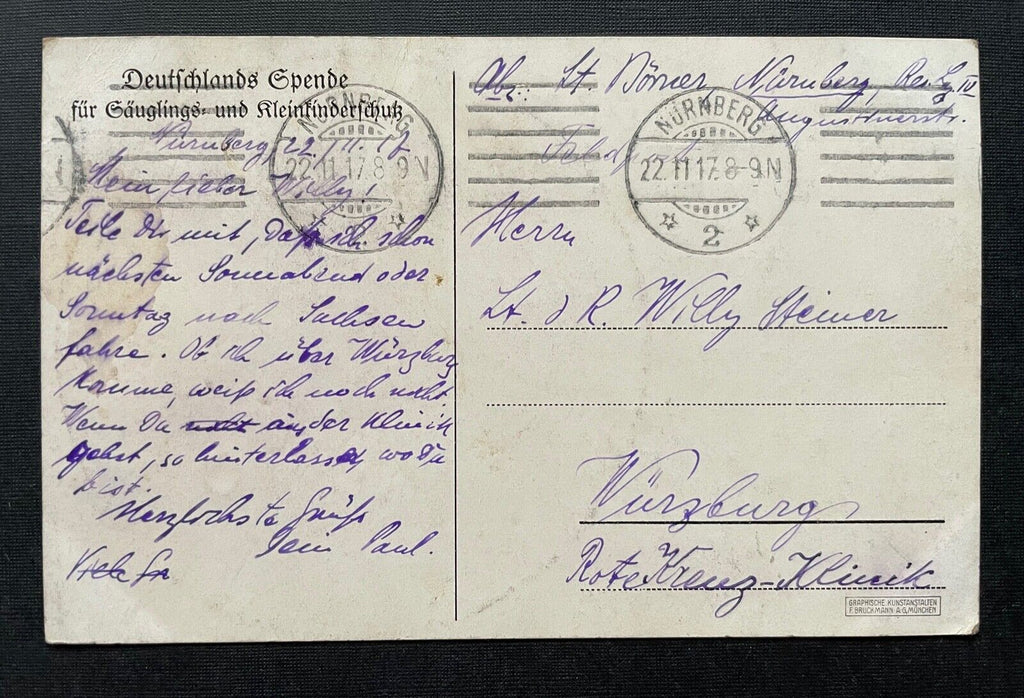 Deutschlands Spende
für Säuglings- und Kleinkinderschutz
Nürnberg 22. 17
Mein lieber Willy!
Teile Dir mit, daß ich schon
nächsten Sonnabend oder
Sonntag nach Sachsen
fahre. Ob ich über Würzburg
komme, weiß ich noch nicht
Wenn Du nicht aus der Klinik
gehst, so hinterlasse, wo Du
bist.
Herzlichste Grüße
Dein Paul.
Viele Gr
NÜRNBERG
22.11.17.8-9N
Abs: Lt. Nürnberg, Res. IV
NÜRNBERG
22.11.17.8-9N
2
Herrn
Lt. d R. Willy Steiner
Würzburg
Rote Kreuz-Klinik
GRAPHISCHE KUNSTANSTALTEN
F. BRUCKMANN A-G, MÜNCHEN